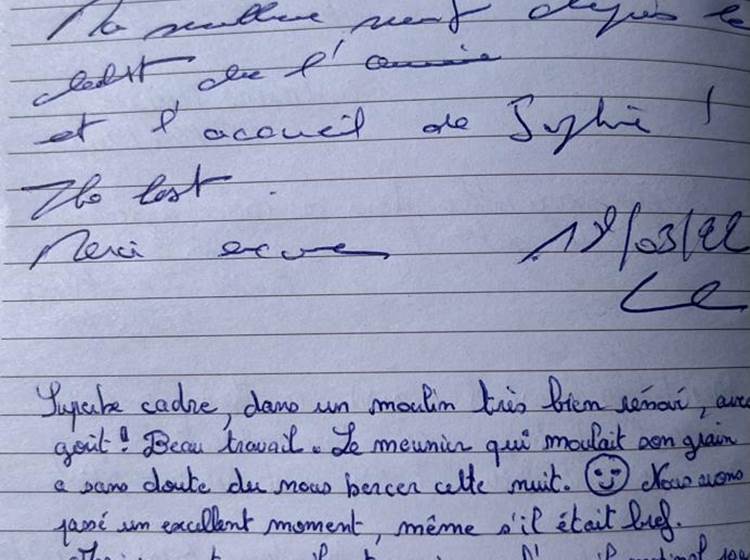 La meilleure nuit depuis le
début de l'année
et l'accueil de Sophie !
The best.
Merci encore 18/03/22
Superbe cadre, dans un moulin très bien rénové, avec
goût ! Beau travail. Le meunier qui moulait son grain
a sans doute du nous bercer cette nuit. Nous avons
passé un excellent moment, même s'il était bref.